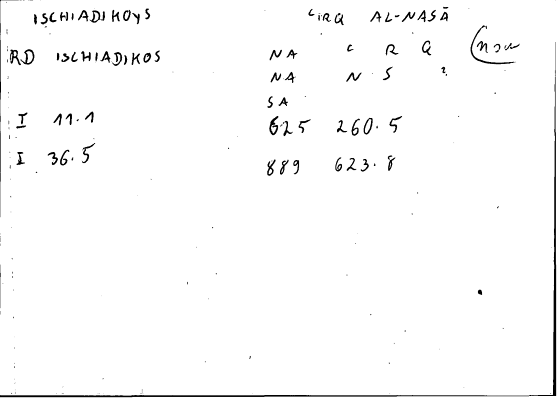 ISCHIADIKOYS ʿIRQ AL-NASĀ
RD ISCHIADIKOS NA ʿ R Q
NA N S ʾ
SA
I 11.1 625 260.5
I 36.5 889 623.8